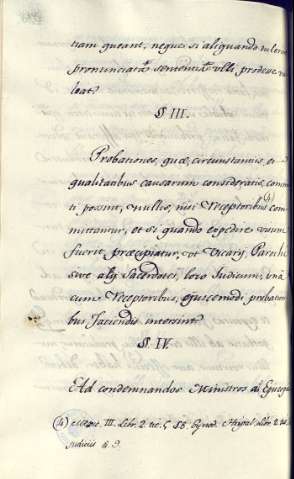 tiam queant, neque si aliquando tulerit
pronunciatã sententiã ulli prodesse va
leat.
§ III.
Probationes, quæ, circunstantiis, et
qualitatibus causarum consideratis, commi
ti possint, nullis, nisi Receptoribus (4) com
mittantur, et si quando expedire visum
fuerit, præcipiatur, ut Vicarij, Parochi
sive alij Sacerdotes, loco Judicum, unà
cum Receptoribus, ejuscemodi probationi
bus faciendis intersint.
§ IV.
Ad condemnandos Ministros ad Episcopa
(4) III. Libr. 2. tit. 5 §8. Synod. Hispal. libr. 2. tit.
Judiciis § 9.